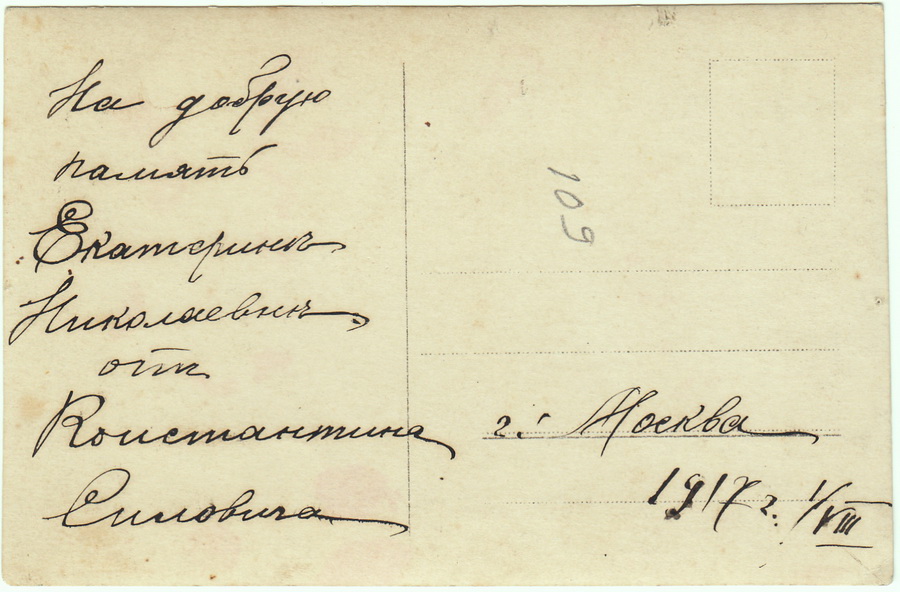 На добрую
память
Екатеринѣ
Николаевнѣ
отъ
Константина
Силовича
109
г. Москва
1917 г. 1/VIII